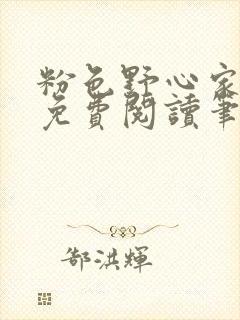 粉色野心家
免費閱讀筆
郜洪輝